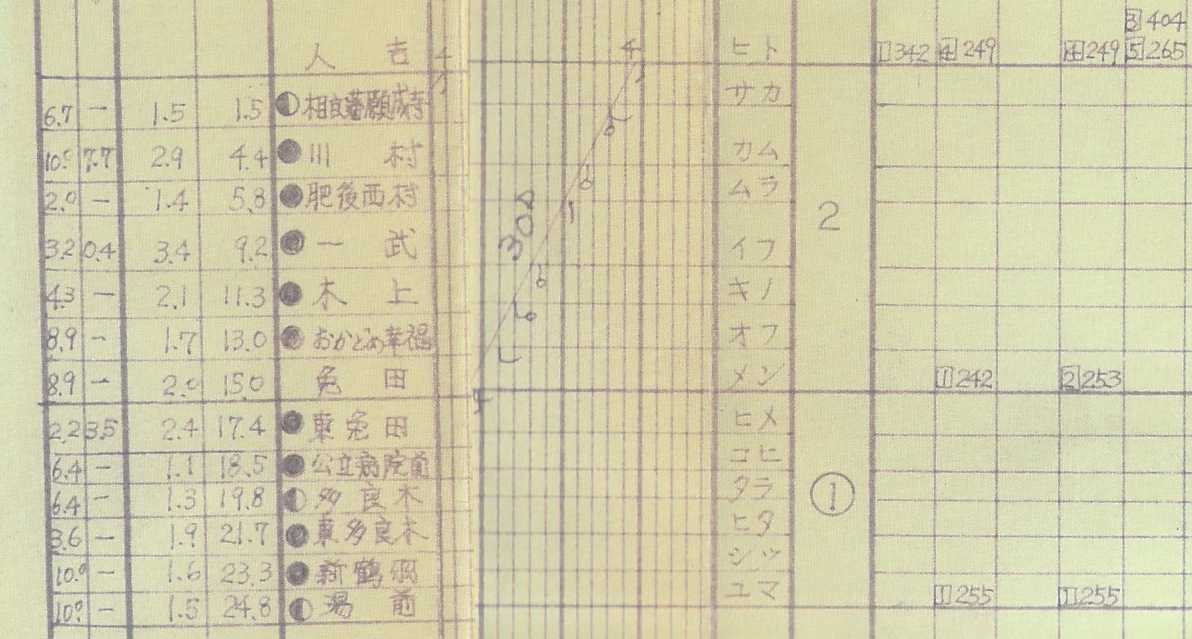 ③404
人吉 4 4 ヒト ①342 ④249 ④249 ⑤265
6.7 ー 1.5 1.5 相良藩願成寺 サカ
10.0 7.7 2.9 4.4 川村 カム
2.0 ー 1.4 5.8 肥後西村 ムラ
3.2 0.4 3.4 9.2 一武 30Δ イフ 2
4.3 ー 2.1 11.3 木上 キノ
8.9 ー 1.7 13.0 おかどめ幸福 オフ
8.9 ー 2.0 15.0 免田 メン ①242 ②253
2.2 3.5 2.4 17.4 東免田 ヒメ
6.4 ー 1.1 18.5 公立病院前 コヒ
6.4 ー 1.3 19.8 多良木 タラ ①
3.6 ー 1.9 21.7 東多良木 ヒタ
10.0 ー 1.6 23.3 新鶴羽 シツ
10.0 ー 1.5 24.8 湯前 ユマ ①255 ①255